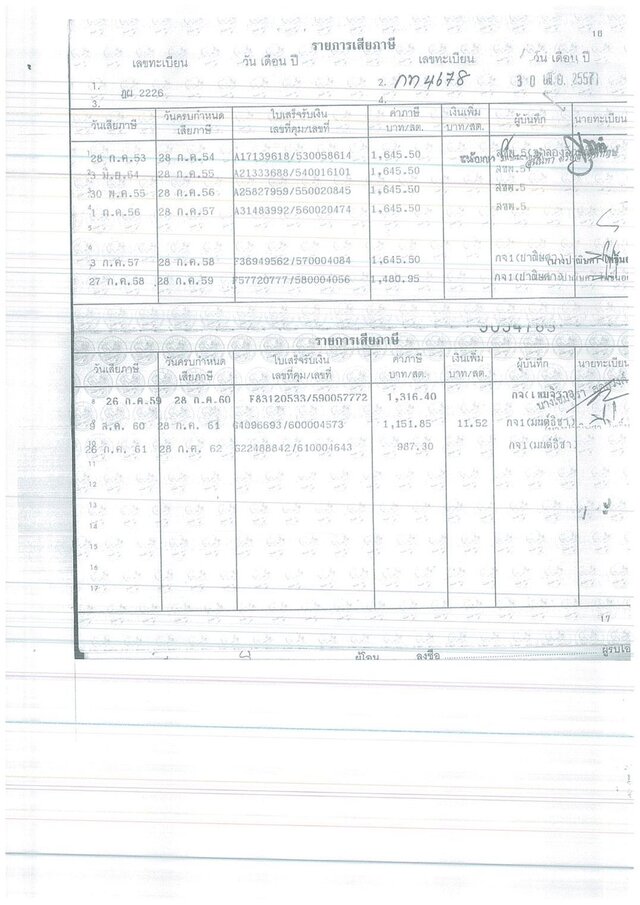 16
รายการเสียภาษี
เลขทะเบียน วัน เดือน ปี เลขทะเบียน วัน เดือน ปี
1. 2. กท 4678 30 เม.ย. 2557
ฎผ 2226
3. 4.
วันเสียภาษี วันครบกำหนด ใบเสร็จรับเงิน ค่าภาษี เงินเพิ่ม ผู้บันทึก นายทะเบียน
เสียภาษี เลขที่คุม/เลขที่ บาท/สต. บาท/สต.
28 ก.ค.53 28 ก.ค.54 A17139618/530058614 1,645.50 สชพ.5
3 มิ.ย.54 28 ก.ค.55 A21333688/540016101 1,645.50 สชพ.5
30 พ.ค.55 28 ก.ค.56 A25827959/550020845 1,645.50 สชพ.5
1 ก.ค.56 28 ก.ค.57 A31483992/560020474 1,645.50 สชพ.5
5
6
3 ก.ค.57 28 ก.ค.58 F36949562/570004084 1,645.50
27 ก.ค.58 28 ก.ค.59 F57720777/580004056 1,480.95
รายการเสียภาษี
วันเสียภาษี วันครบกำหนด ใบเสร็จรับเงิน ค่าภาษี เงินเพิ่ม ผู้บันทึก นายทะเบียน
เสียภาษี เลขที่คุม/เลขที่ บาท/สต. บาท/สต.
8 26 ก.ค.59 28 ก.ค.60 F83120533/590057772 1,316.40
9 ส.ค. 60 28 ก.ค. 61 G4096693/600004573 1,151.85 11.52 กจ1(มนต์ธิชา)
26 ก.ค. 61 28 ก.ค. 62 G22488842/610004643 987.30 กจ1(มนต์ธิชา
11
12
13
14
15
16
17
17
ผู้โอน ลงชื่อ ผู้รับโอ